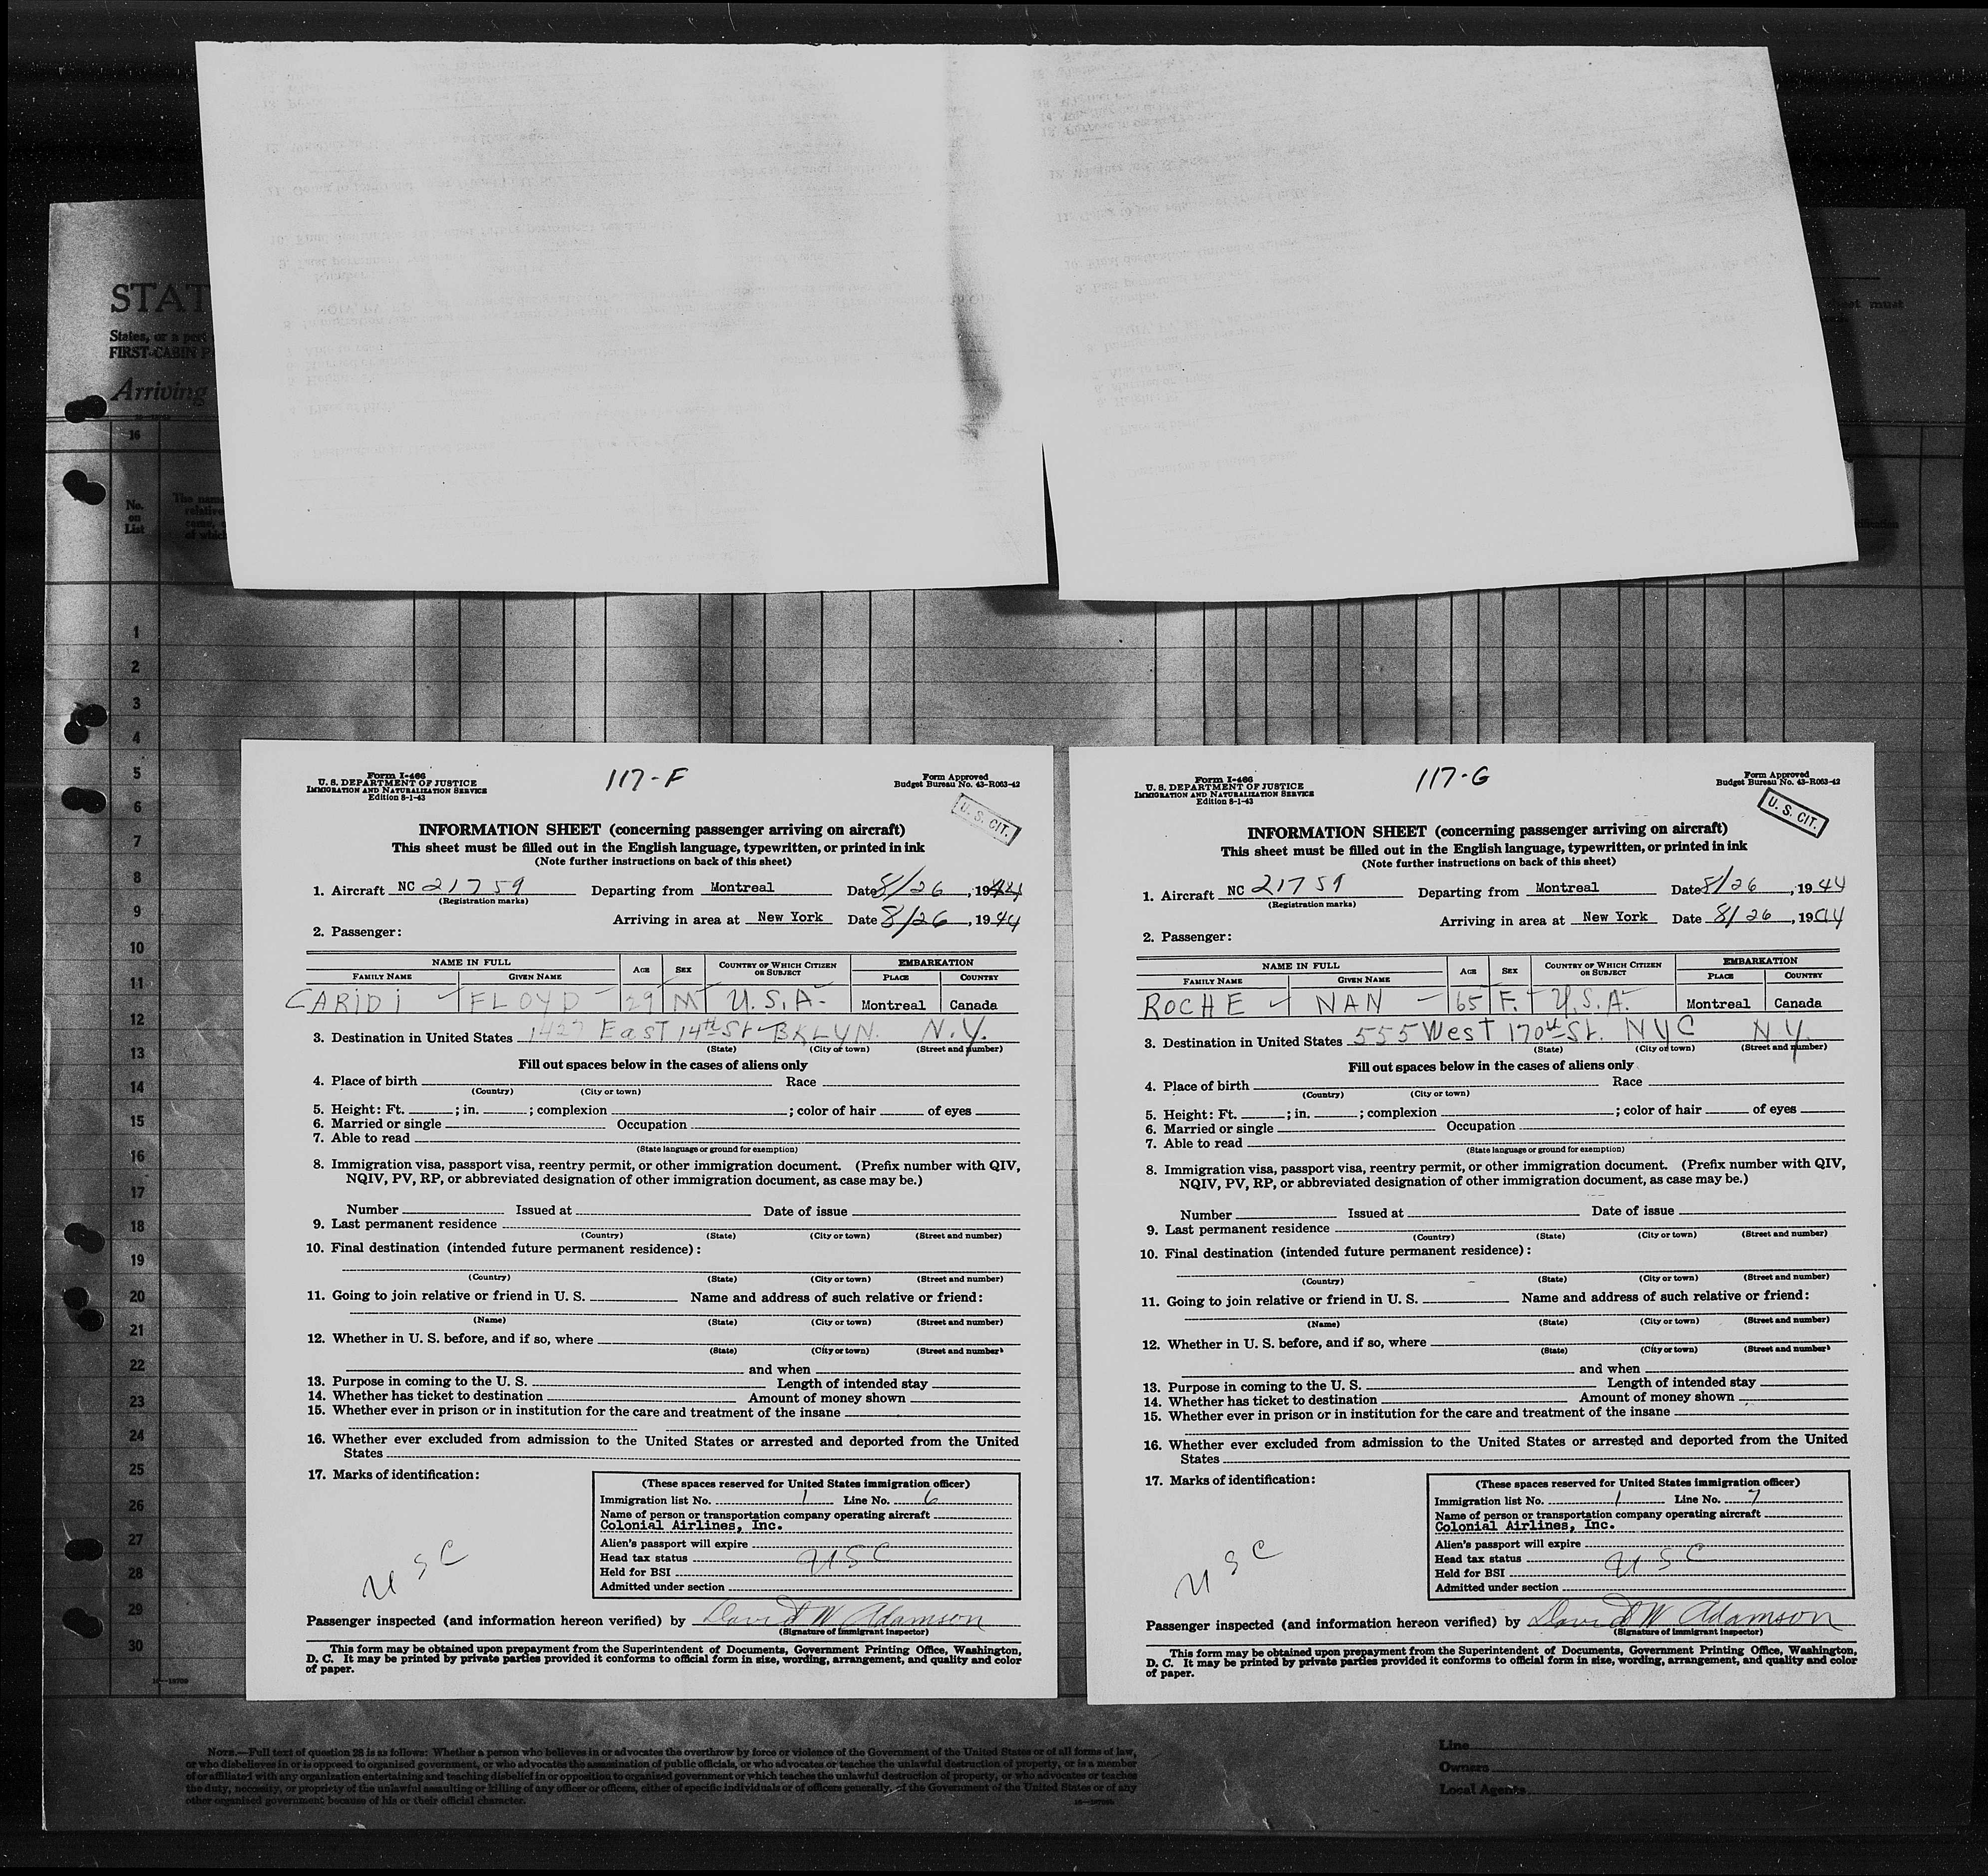 STAT
States, or a port
FIRST-CABIN P
Arriving
eet must
16
No.
on
List
The name
relative
come,
of which
1
2
3
4
5
6
7
8
9
10
11
12
13
14
15
16
17
18
19
20
21
22
23
24
25
26
27
28
29
30
Form I-466
U. S. DEPARTMENT OF JUSTICE
IMMIGRATION AND NATURALIZATION SERVICE
Edition 8-1-43
117-F
Form Approved
Budget Bureau No. 43-R063-42
U. S. CIT.
INFORMATION SHEET (concerning passenger arriving on aircraft)
This sheet must be filled out in the English language, typewritten, or printed in ink
(Note further instructions on back of this sheet)
1. Aircraft NC 21759 Departing from Montreal Date 8/26, 1944
(Registration marks)
Arriving in area at New York Date 8/26, 1944
2. Passenger:
NAME IN FULL AGE SEX COUNTRY OF WHICH CITIZEN OR SUBJECT EMBARKATION
FAMILY NAME GIVEN NAME PLACE COUNTRY
CARIDI FLOYD 29 M U.S.A. Montreal Canada
3. Destination in United States 1427 East 14th St BKLYN. N.Y.
(State) (City or town) (Street and number)
Fill out spaces below in the cases of aliens only
4. Place of birth Race
(Country) (City or town)
5. Height: Ft. ; in. ; complexion ; color of hair of eyes
6. Married or single Occupation
7. Able to read
(State language or ground for exemption)
8. Immigration visa, passport visa, reentry permit, or other immigration document. (Prefix number with QIV,
NQIV, PV, RP, or abbreviated designation of other immigration document, as case may be.)
Number Issued at Date of issue
9. Last permanent residence
(Country) (State) (City or town) (Street and number)
10. Final destination (intended future permanent residence):
(Country) (State) (City or town) (Street and number)
11. Going to join relative or friend in U. S. Name and address of such relative or friend:
(Name) (State) (City or town) (Street and number)
12. Whether in U. S. before, and if so, where
(State) (City or town) (Street and number)
and when
13. Purpose in coming to the U. S. Length of intended stay
14. Whether has ticket to destination Amount of money shown
15. Whether ever in prison or in institution for the care and treatment of the insane
16. Whether ever excluded from admission to the United States or arrested and deported from the United
States
17. Marks of identification:
(These spaces reserved for United States immigration officer)
Immigration list No. 1 Line No. 6
Name of person or transportation company operating aircraft
Colonial Airlines, Inc.
Alien's passport will expire
Head tax status USC
Held for BSI
Admitted under section
USC
Passenger inspected (and information hereon verified) by David W Adamson
(Signature of immigrant inspector)
This form may be obtained upon prepayment from the Superintendent of Documents, Government Printing Office, Washington,
D. C. It may be printed by private parties provided it conforms to official form in size, wording, arrangement, and quality and color
of paper.
Form I-466
U. S. DEPARTMENT OF JUSTICE
IMMIGRATION AND NATURALIZATION SERVICE
Edition 8-1-43
117-G
Form Approved
Budget Bureau No. 43-R063-42
U. S. CIT.
INFORMATION SHEET (concerning passenger arriving on aircraft)
This sheet must be filled out in the English language, typewritten, or printed in ink
(Note further instructions on back of this sheet)
1. Aircraft NC 21759 Departing from Montreal Date 8/26, 1944
(Registration marks)
Arriving in area at New York Date 8/26, 1944
2. Passenger:
NAME IN FULL AGE SEX COUNTRY OF WHICH CITIZEN OR SUBJECT EMBARKATION
FAMILY NAME GIVEN NAME PLACE COUNTRY
ROCHE NAN 65 F. U.S.A. Montreal Canada
3. Destination in United States 555 West 170th St. NYC N.Y.
(State) (City or town) (Street and number)
Fill out spaces below in the cases of aliens only
4. Place of birth Race
(Country) (City or town)
5. Height: Ft. ; in. ; complexion ; color of hair of eyes
6. Married or single Occupation
7. Able to read
(State language or ground for exemption)
8. Immigration visa, passport visa, reentry permit, or other immigration document. (Prefix number with QIV,
NQIV, PV, RP, or abbreviated designation of other immigration document, as case may be.)
Number Issued at Date of issue
9. Last permanent residence
(Country) (State) (City or town) (Street and number)
10. Final destination (intended future permanent residence):
(Country) (State) (City or town) (Street and number)
11. Going to join relative or friend in U. S. Name and address of such relative or friend:
(Name) (State) (City or town) (Street and number)
12. Whether in U. S. before, and if so, where
(State) (City or town) (Street and number)
and when
13. Purpose in coming to the U. S. Length of intended stay
14. Whether has ticket to destination Amount of money shown
15. Whether ever in prison or in institution for the care and treatment of the insane
16. Whether ever excluded from admission to the United States or arrested and deported from the United
States
17. Marks of identification:
(These spaces reserved for United States immigration officer)
Immigration list No. 1 Line No. 7
Name of person or transportation company operating aircraft
Colonial Airlines, Inc.
Alien's passport will expire
Head tax status USC
Held for BSI
Admitted under section
USC
Passenger inspected (and information hereon verified) by David W Adamson
(Signature of immigrant inspector)
This form may be obtained upon prepayment from the Superintendent of Documents, Government Printing Office, Washington,
D. C. It may be printed by private parties provided it conforms to official form in size, wording, arrangement, and quality and color
of paper.
NOTE.—Full text of question 28 is as follows: Whether a person who believes in or advocates the overthrow by force or violence of the Government of the United States or of all forms of law,
or who disbelieves in or is opposed to organized government, or who advocates the assassination of public officials, or who advocates or teaches the unlawful destruction of property, or is a member
of or affiliated with any organization entertaining and teaching disbelief in or opposition to organized government or which teaches the unlawful destruction of property, or who advocates or teaches
the duty, necessity, or propriety of the unlawful assaulting or killing of any officer or officers, either of specific individuals or of officers generally, of the Government of the United States or of any
other organized government because of his or their official character.
Line
Owners
Local Agents